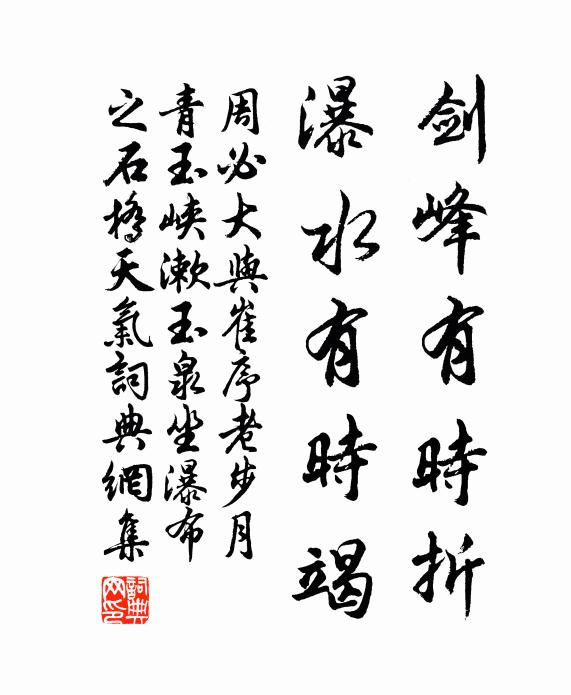 劍峰有時折
瀑水有時竭
周必大與崔序老步月
青玉峽漱玉泉坐瀑布
之石橋天氣詞典網集
詞典網印